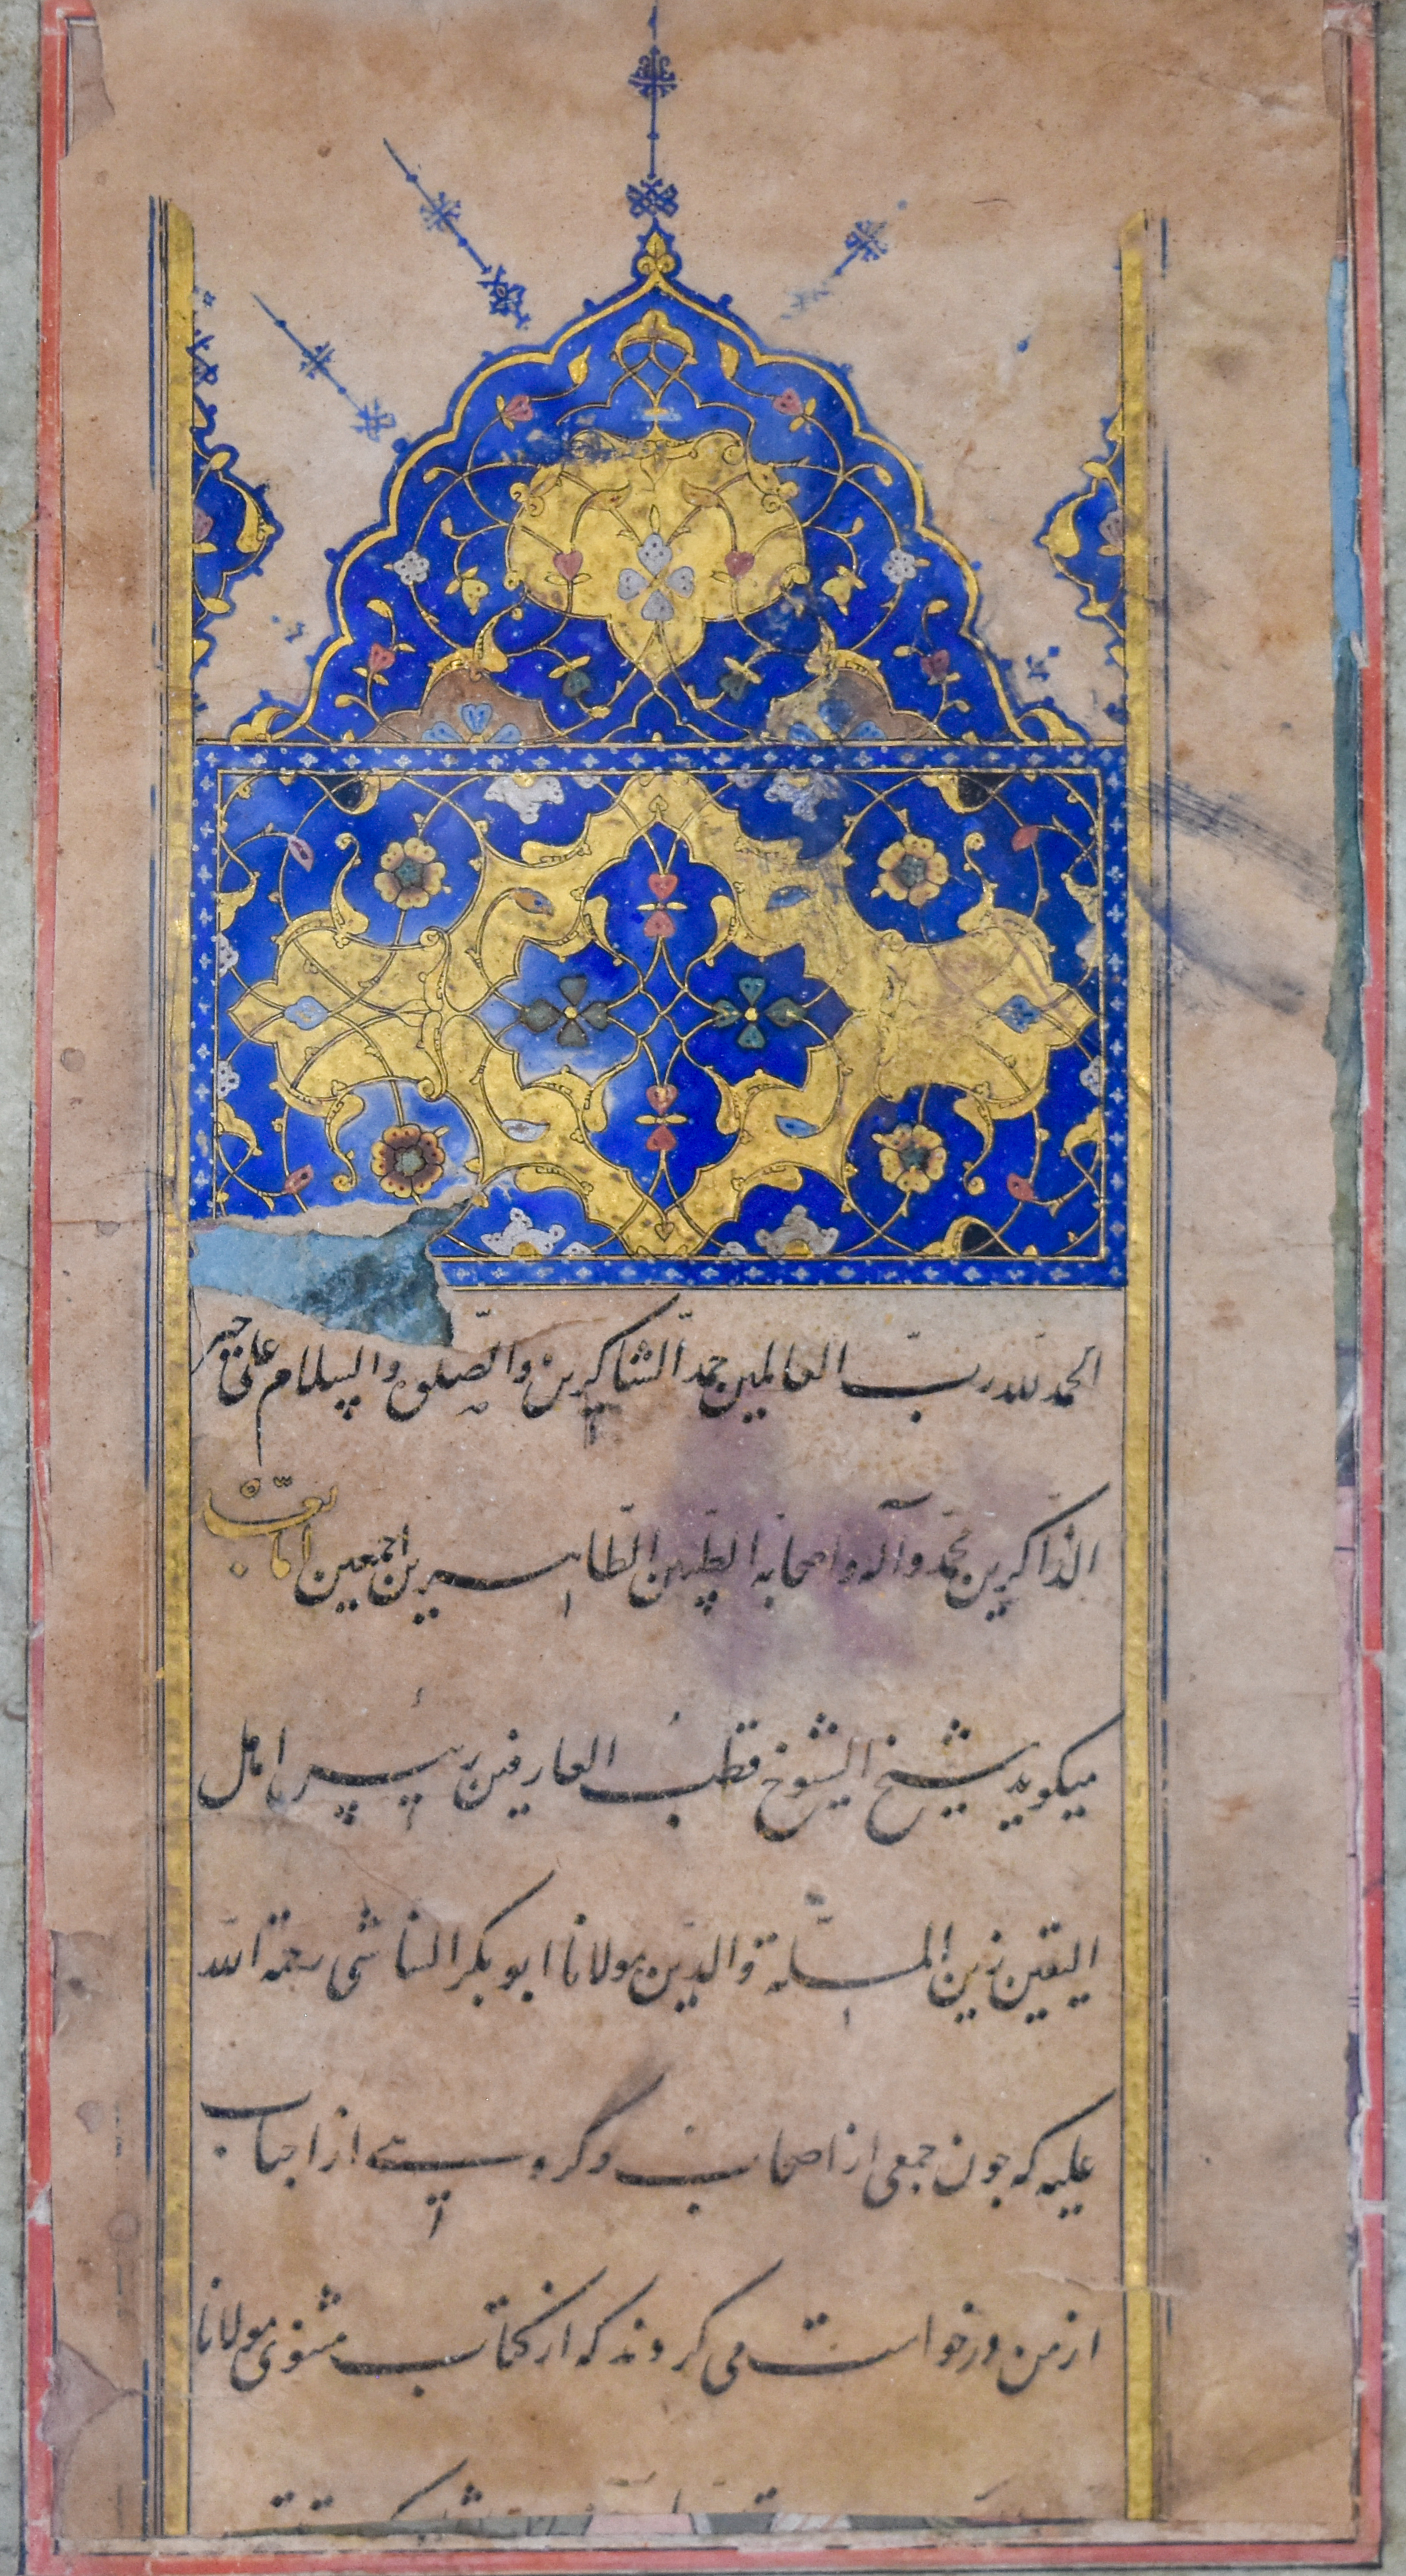 الحمد لله رب العالمین حمد الشاکرین والصلوة والسلام علی خیر
الذاکرین محمد وآله واصحابه الطیبین الطاهرین اجمعین اما بعد
میکوید شیخ الشیوخ قطب العارفین رئیس اهل
الیقین زین الملة والدین مولانا ابو بکر الشاشی رحمة الله
علیه که جون جمعی از اصحاب وکروهی از احباب
از من درخواست می کردند که از کتاب مثنوی مولانا